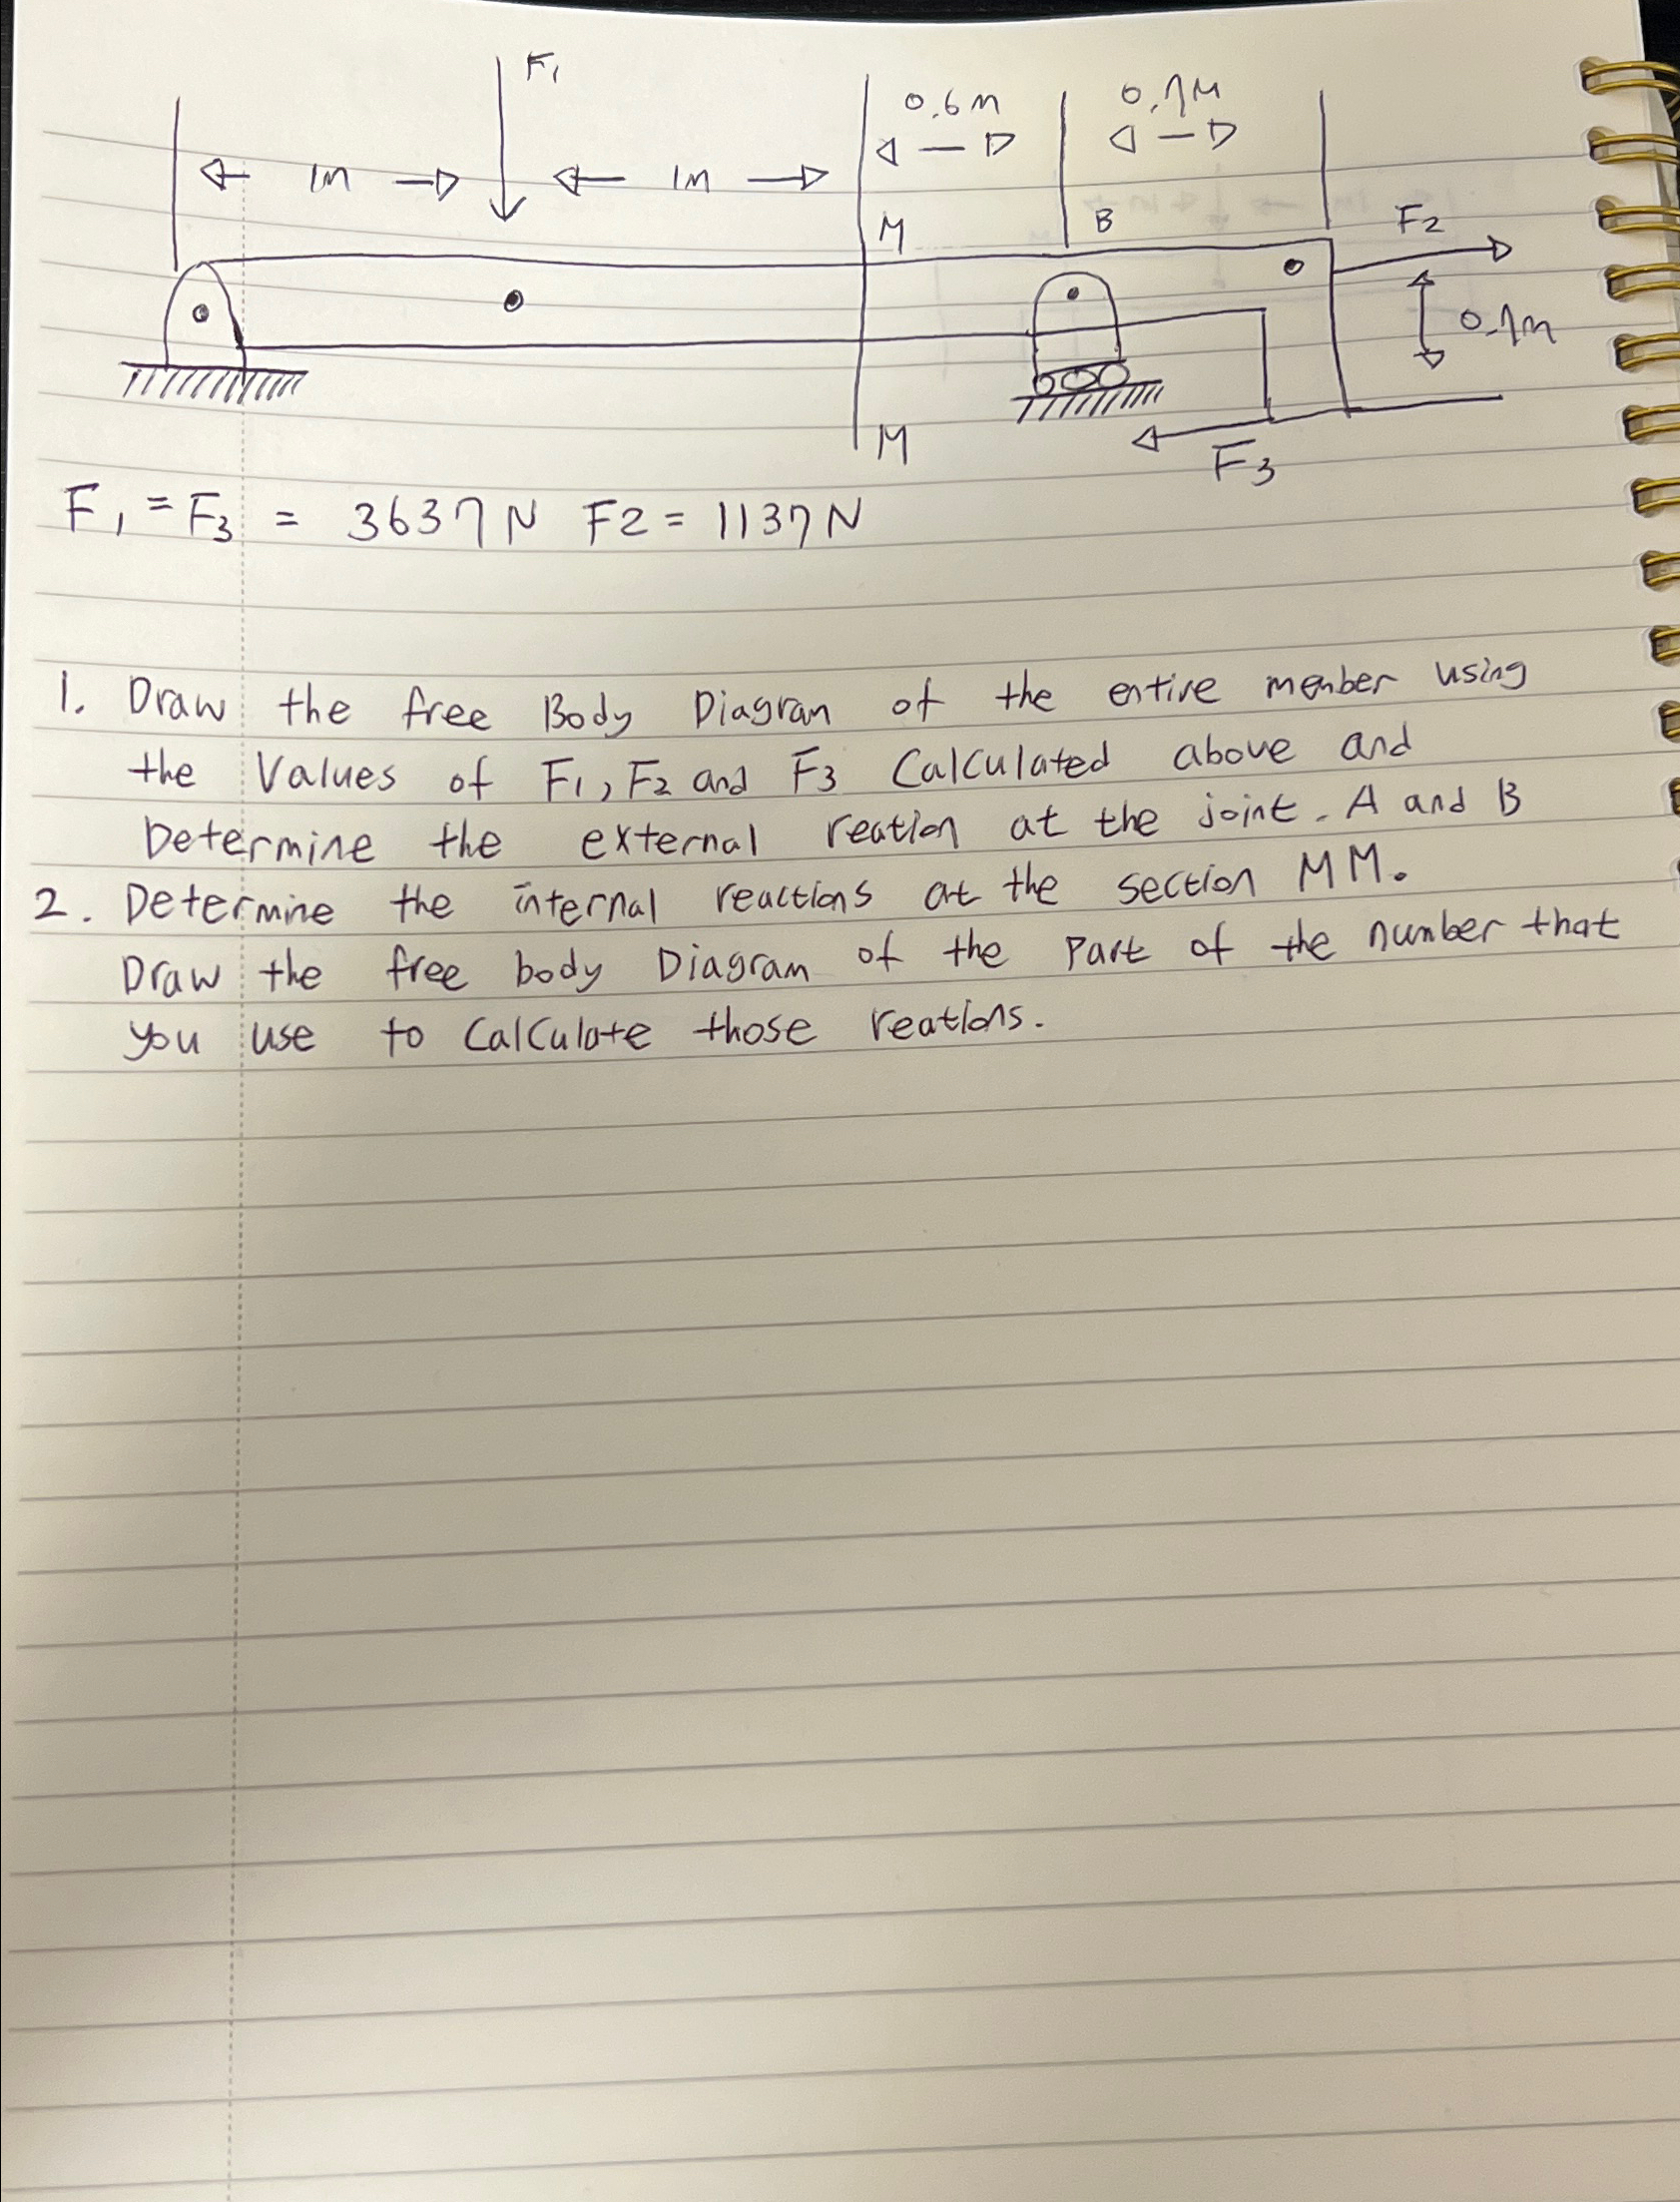 F1
0.6m 0.7M
1m 1m
M B F2
0.7m
M F3
F1 = F3 = 3637N F2 = 1137N
1. Draw the free Body Diagram of the entire member using
the Values of F1, F2 and F3 Calculated above and
Determine the external reation at the joint. A and B
2. Determine the internal reactions at the section MM.
Draw the free body Diagram of the Part of the number that
you use to Calculate those reations.